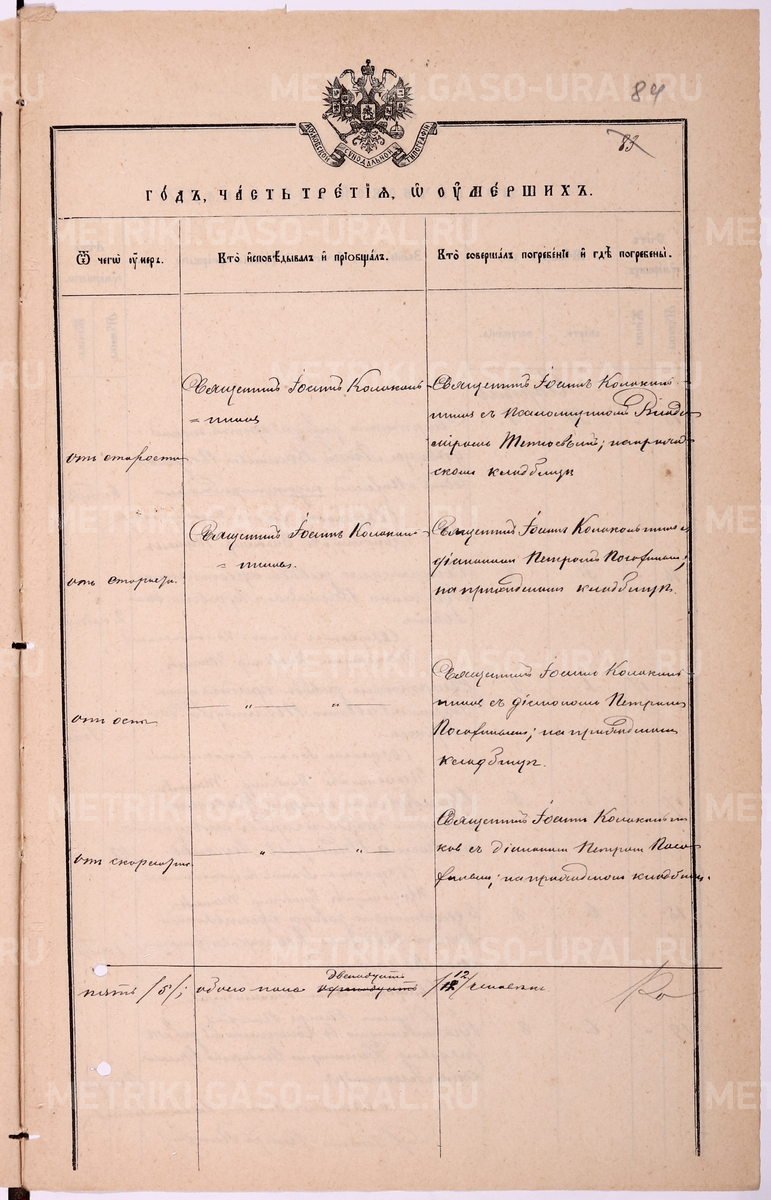 84
83
МОСКОВСКОЙ СѴНОДАЛЬНОЙ ТИПОГРАФІИ
ГО́ДЪ, ЧА́СТЬ ТРЕ́ТІЯ, Ѡ ОУМЕ́РШИХЪ.
Ѿ чегѡ оу́меръ.
Кто̀ и҆сповѣ́дывалъ и҆ прїѻбща́лъ.
Кто̀ соверша́лъ погребе́нїе и҆ гдѣ̀ погребены̀.
отъ старости
Священникъ Іоаннъ Колоколь=
=никовъ
Священникъ Іоаннъ Колоколь-
никовъ съ псаломщикомъ Влади
міромъ на приход
скомъ кладбищѣ
отъ старости.
Священникъ Іоаннъ Колоколь=
=никовъ.
Священникъ Іоаннъ Колокольниковъ съ
діакономъ Петромъ
на приходскомъ кладбищѣ.
отъ оспы
— „ — „ —
Священникъ Іоаннъ Колоколь
никовъ съ діакономъ Петромъ
на приходскомъ
кладбищѣ.
отъ скарлатины
— „ — „ —
Священникъ Іоаннъ Колокольни
ковъ съ діакономъ Петромъ
на приходскомъ кладбищѣ.
пять /5/; обоего пола двенадцать /12/ человекъ
METRIKI.GASO-URAL.RU